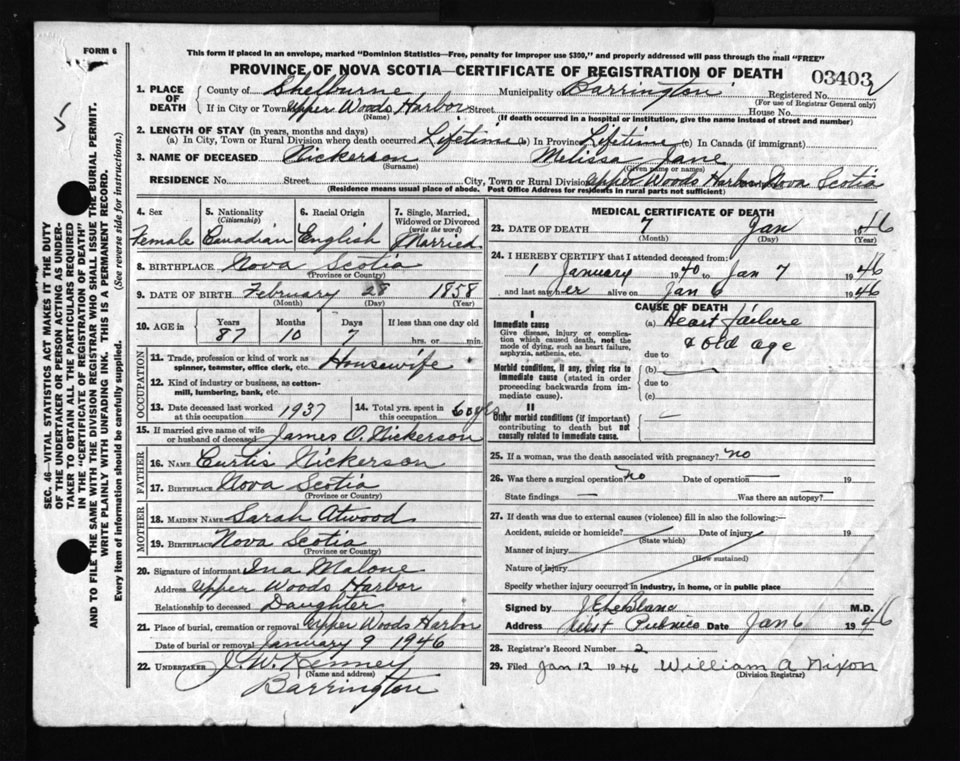 FORM 6
This form if placed in an envelope, marked "Dominion Statistics—Free, penalty for improper use $300," and properly addressed will pass through the mail "FREE"
PROVINCE OF NOVA SCOTIA—CERTIFICATE OF REGISTRATION OF DEATH
03403
5
SEC. 46—VITAL STATISTICS ACT MAKES IT THE DUTY
OF THE UNDERTAKER OR PERSON ACTING AS UNDER-
TAKER TO OBTAIN ALL THE PARTICULARS REQUIRED
IN THE "CERTIFICATE OF REGISTRATION OF DEATH"
AND TO FILE THE SAME WITH THE DIVISION REGISTRAR WHO SHALL ISSUE THE BURIAL PERMIT.
WRITE PLAINLY WITH UNFADING INK. THIS IS A PERMANENT RECORD.
Every item of information should be carefully supplied. (See reverse side for instructions.)
1. PLACE OF DEATH County of Shelburne Municipality of Barrington Registered No.
(For use of Registrar General only)
If in City or Town Upper Woods Harbor Street House No.
(Name) (If death occurred in a hospital or institution, give the name instead of street and number)
2. LENGTH OF STAY (in years, months and days)
(a) In City, Town or Rural Division where death occurred Lifetime (b) In Province Lifetime (c) In Canada (if immigrant)
3. NAME OF DECEASED Nickerson Melissa Jane
(Surname) (Given name or names)
RESIDENCE No. Street City, Town or Rural Division Upper Woods Harbor Nova Scotia
(Residence means usual place of abode. Post Office Address for residents in rural parts not sufficient)
4. Sex 5. Nationality (Citizenship) 6. Racial Origin 7. Single, Married, Widowed or Divorced (write the word)
Female Canadian English Married
8. BIRTHPLACE Nova Scotia
(Province or Country)
9. DATE OF BIRTH February 28 1858
(Month) (Day) (Year)
10. AGE in Years Months Days If less than one day old
87 10 7 hrs. or min.
OCCUPATION
11. Trade, profession or kind of work as
spinner, teamster, office clerk, etc. Housewife
12. Kind of industry or business, as cotton-
mill, lumbering, bank, etc.
13. Date deceased last worked at this occupation 1937 14. Total yrs. spent in this occupation 60 yrs.
15. If married give name of wife
or husband of deceased James O. Nickerson
FATHER
16. NAME Curtis Nickerson
17. BIRTHPLACE Nova Scotia
(Province or Country)
MOTHER
18. MAIDEN NAME Sarah Atwood
19. BIRTHPLACE Nova Scotia
(Province or Country)
20. Signature of informant Ina Malone
Address Upper Woods Harbor
Relationship to deceased Daughter
21. Place of burial, cremation or removal Upper Woods Harbor
Date of burial or removal January 9 1946
22. UNDERTAKER J. W. Kenney
(Name and address)
Barrington
MEDICAL CERTIFICATE OF DEATH
23. DATE OF DEATH 7 Jan 1946
(Month) (Day) (Year)
24. I HEREBY CERTIFY that I attended deceased from:
1 January 1940 to Jan 7 1946
and last saw her alive on Jan 6 1946
CAUSE OF DEATH
I
Immediate cause (a) Heart failure
Give disease, injury or complica-
tion which caused death, not the
mode of dying, such as heart failure,
asphyxia, asthenia, etc.
& old age
due to
Morbid conditions, if any, giving rise to
immediate cause (stated in order
proceeding backwards from im-
mediate cause).
(b) —
due to
(c)
II
Other morbid conditions (if important)
contributing to death but not
causally related to immediate cause.
25. If a woman, was the death associated with pregnancy? no
26. Was there a surgical operation no Date of operation — 19
State findings — Was there an autopsy? —
27. If death was due to external causes (violence) fill in also the following:—
Accident, suicide or homicide? Date of injury 19
(State which)
Manner of injury
(How sustained)
Nature of injury
Specify whether injury occurred in industry, in home, or in public place
Signed by J E LeBlanc M.D.
Address West Pubnico Date Jan 6 1946
28. Registrar's Record Number 2
29. Filed Jan 12 1946 William A Nixon
(Division Registrar)